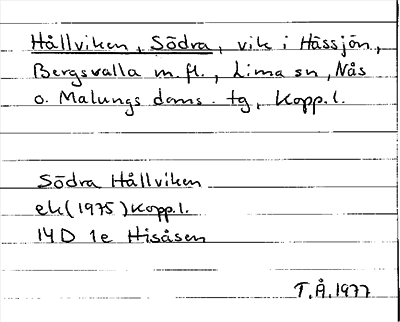 Hållviken, Södra, vik i Hässjön,
Bergsvalla m.fl., Lima sn, Nås
o. Malungs doms. tg, Kopp.l.
Södra Hållviken
ek (1975) Kopp.l.
14D 1e Hisåsen
T.Å. 1977